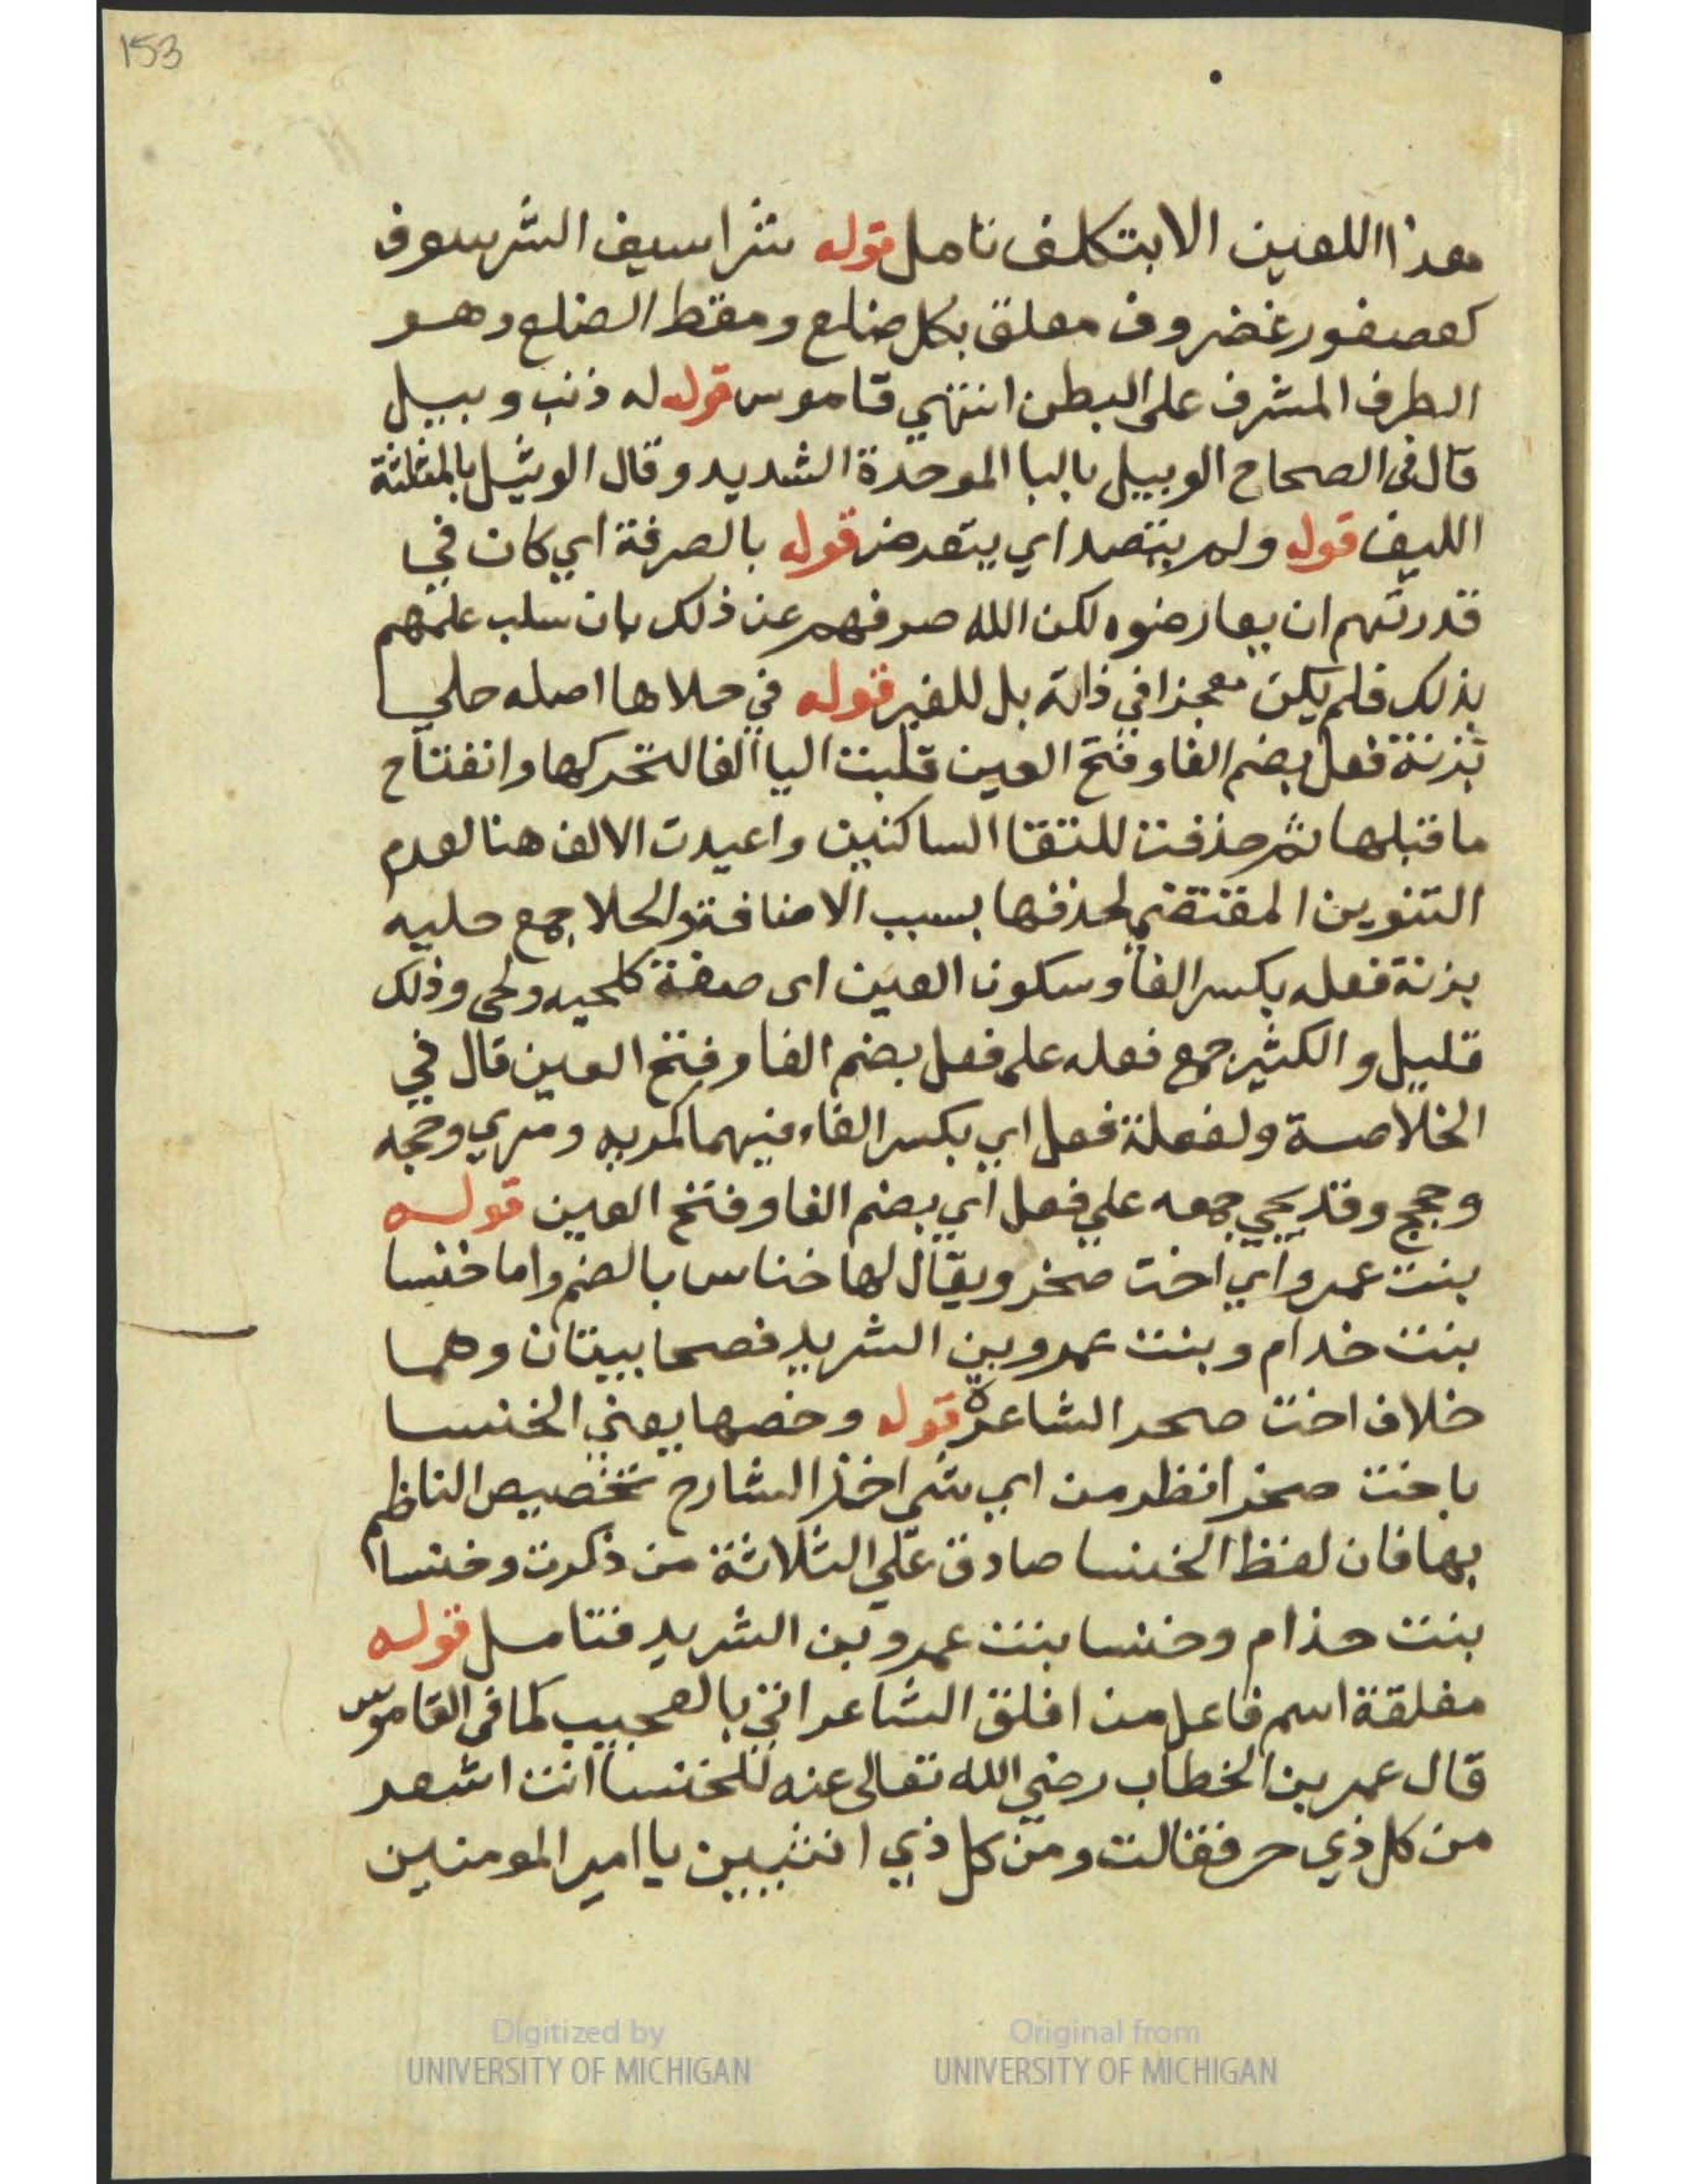 153
هذا اللعين الا بتكلف تامل قوله شراسيف الشرسوف
كعصفور غضروف معلق بكل ضلع ومقط الضلع وهو
الطرف المشرف على البطن انتهي قاموس قوله له ذنب وبيل
قال في الصحاح الوبيل بالبا الموحدة الشديد وقال الوثيل بالمثلثة
الليف قوله ولم يتصد اي يتعرض قوله بالصرفة اي كان في
قدرتهم ان يعارضوه لكن الله صرفهم عن ذلك بان سلب علمهم
بذلك فلم يكن معجزا في ذاته بل للغير قوله في حلاها اصله حلي
بزنة فعل بضم الفا وفتح العين قلبت اليا الفا لتحركها وانفتاح
ما قبلها ثم حذفت للتقا الساكنين واعيدت الالف هنا لعدم
التنوين المقتضي لحذفها بسبب الاضافة والحلا جمع حليه
بزنة فعله بكسر الفا وسكون العين اى صفة كلحيه ولحى وذلك
قليل والكثير جمع فعله على فعل بضم الفا وفتح العين قال في
الخلاصة ولفعلة فعل اي بكسر الفاء فيهما كمريه ومري وحجه
وحجج وقد يجي جمعه علي فعل اي بضم الفا وفتح العين قوله
بنت عمرو اي اخت صخر ويقال لها خناس بالضم واما خنسا
بنت خدام وبنت عمرو بن الشريد فصحابيتان وهما
خلاف اخت صحر الشاعرة قوله وخصها يعني الخنسا
باخت صخر انظر من اي شي اخذ الشارح تخصيص الناظم
بها فان لفظ الخنسا صادق علي الثلاثة من ذكرت وخنسا
بنت حذام وخنسا بنت عمرو بن الشريد فتامل قوله
مفلقة اسم فاعل من افلق الشاعر اتي بالعجيب كما في القاموس
قال عمر بن الخطاب رضي الله تعالى عنه للخنسا انت اشعر
من كل ذي حر فقالت ومن كل ذي انثيين يا امير المومنين
Digitized by UNIVERSITY OF MICHIGAN
Original from UNIVERSITY OF MICHIGAN